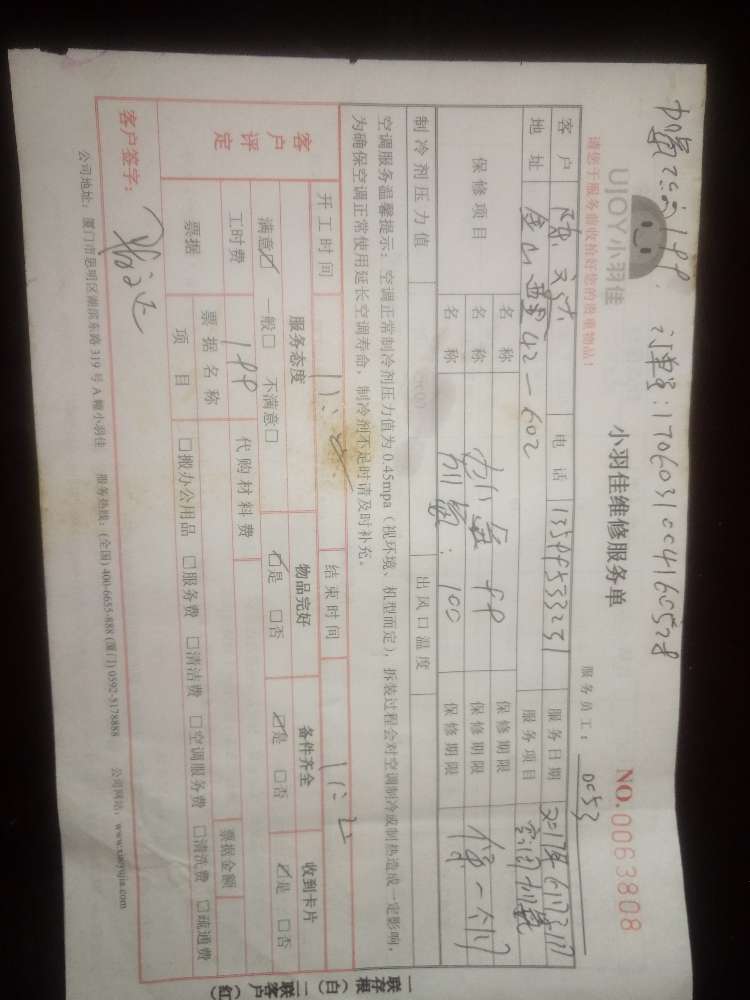 订单号:
请您于服务前收拾好您的贵重物品!
UJOY小羽佳
小羽佳维修服务单
服务员工: 0053
NO.0063808
客户 陈
电话
服务日期 2017年6月3日
地址 金山 42-602
服务项目 空调加氟
保修项目
名称
保修期限
名称 加氟 99
保修期限 保一个月
名称 100
保修期限
制冷剂压力值
出风口温度
空调服务温馨提示:空调正常制冷剂压力值为0.45mpa(视环境、机型而定),拆装过程会对空调制冷或制热造成一定影响,
为确保空调正常使用延长空调寿命,制冷剂不足时请及时补充。
开工时间
结束时间
客户评定
服务态度
物品完好
备件齐全
收到卡片
满意☑ 一般□ 不满意□
☑是 □否
☑是 □否
☑是 □否
工时费 199
代购材料费
票据
票据名称
票据金额
项目
□搬办公用品 □服务费 □清洁费 □空调服务费 □清洗费 □疏通费
客户签字:
公司地址:厦门市思明区湖滨东路319号A幢小羽佳 服务热线:(全国)400-6655-888 (厦门)0592-5178888 公司网站:www.xiaoyujia.com
一联存根(白) 二联客户(红)